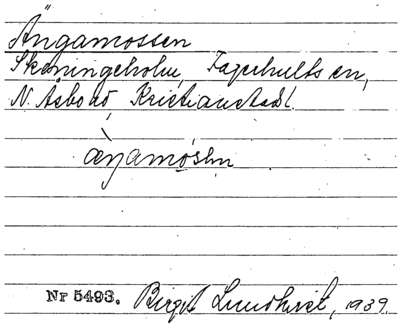 Ängamossen
Skäningeholm, Fagerhults sn,
N. Åsbo hd Kristianstads l.
æŋamosən
Nr 5493. Birgit Lundkvist, 1939.